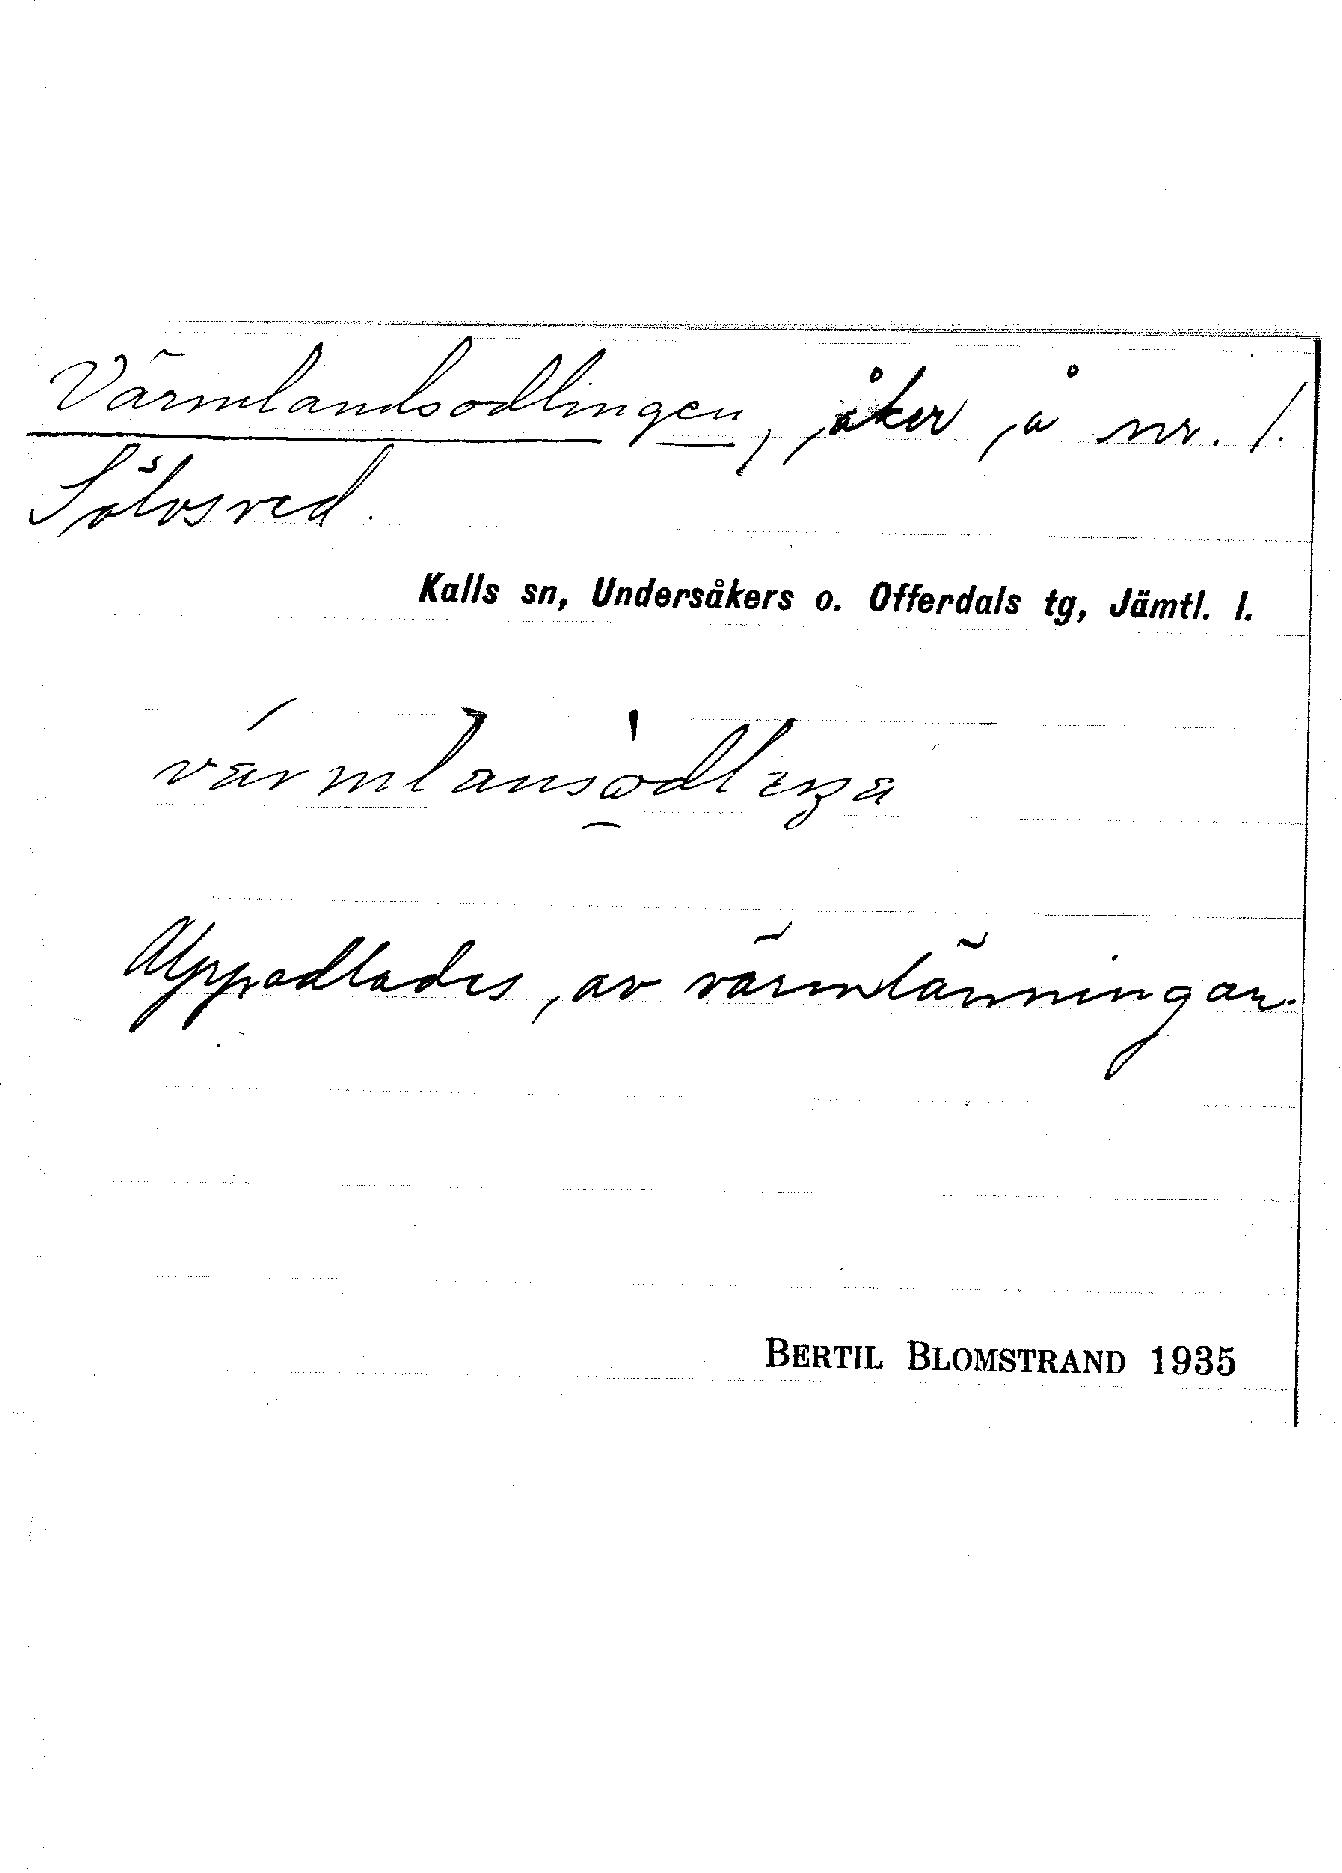 Värmlandsodlingen, åker å nr. 1.
Sölvsved.
Kalls sn, Undersåkers o. Offerdals tg, Jämtl. l.
Uppodlades av värmlänningar.
BERTIL BLOMSTRAND 1935